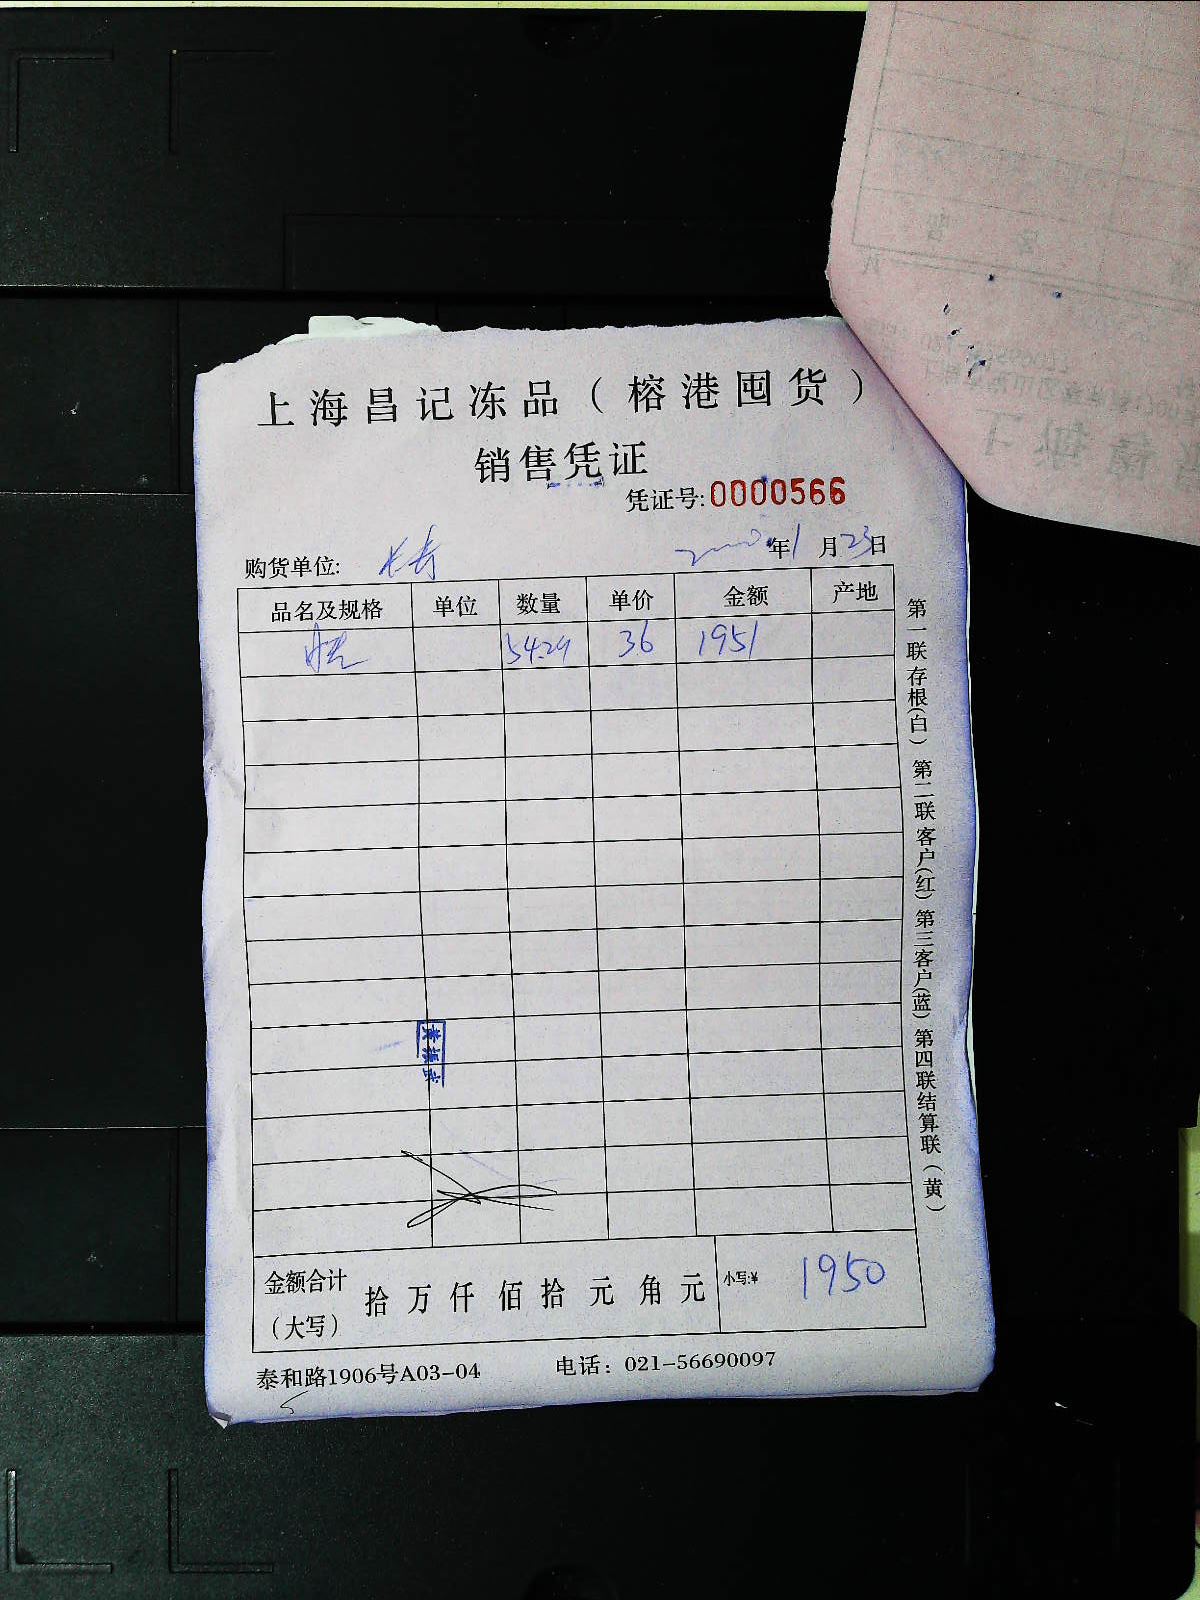 上海昌记冻品（榕港囤货）
销售凭证
凭证号:0000566
购货单位: 长寿 年1月23日
品名及规格 单位 数量 单价 金额 产地
54.29 36 1951
金额合计（大写） 拾 万 仟 佰 拾 元 角 元 小写:¥ 1950
泰和路1906号A03-04 电话：021-56690097
第一联存根(白) 第二联客户(红) 第三客户(蓝) 第四联结算联(黄)